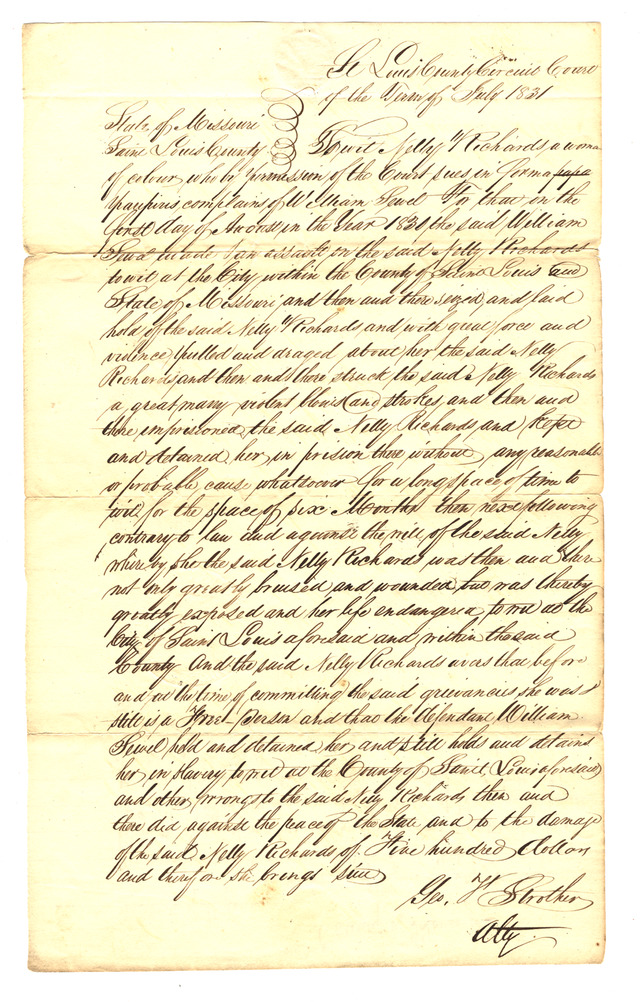 St Louis County Circuit Court
of the Term of July 1831
State of Missouri
Saint Louis County
Towit Nelly Richards, a woman
of colour, who by permission of the Court sues in forma papa
pauperis complains of William Sewel For that on the
first day of August in the Year 1830 the said William
Sewel made an assault on the said Nelly Richards
towit at the City within the County of Saint Louis and
State of Missouri and then and there seized and laid
hold of the said Nelly Richards and with great force and
violence pulled and draged about her the said Nelly
Richards and then and there struck the said Nelly Richards
a great many violent blows and strokes and then and
there imprisoned the said Nelly Richards and kept
and detained her in prision there without any reasonable
or probable cause whatsoever for a long space of time to
wit for the space of six Months then next following
contrary to law and against the will of the said Nelly
where by she the said Nelly Richards was then and there
not only greatly bruised and wounded but was thereby
greatly exposed and her life endangered towit at the
City of Saint Louis aforesaid and within the said
County And the said Nelly Richards avers that before
and at the time of committing the said grievances she was &
still is a Free person and that the defendant William
Sewel held and detained her and still holds and detains
her in slavery towit at the County of Saint Louis aforesaid
and other wrongs to the said Nelly Richards then and
there did against the peace of the State and to the damage
of the said Nelly Richards of Five hundred dollars
and therefore she brings suit
Geo. F Strother
Atty.